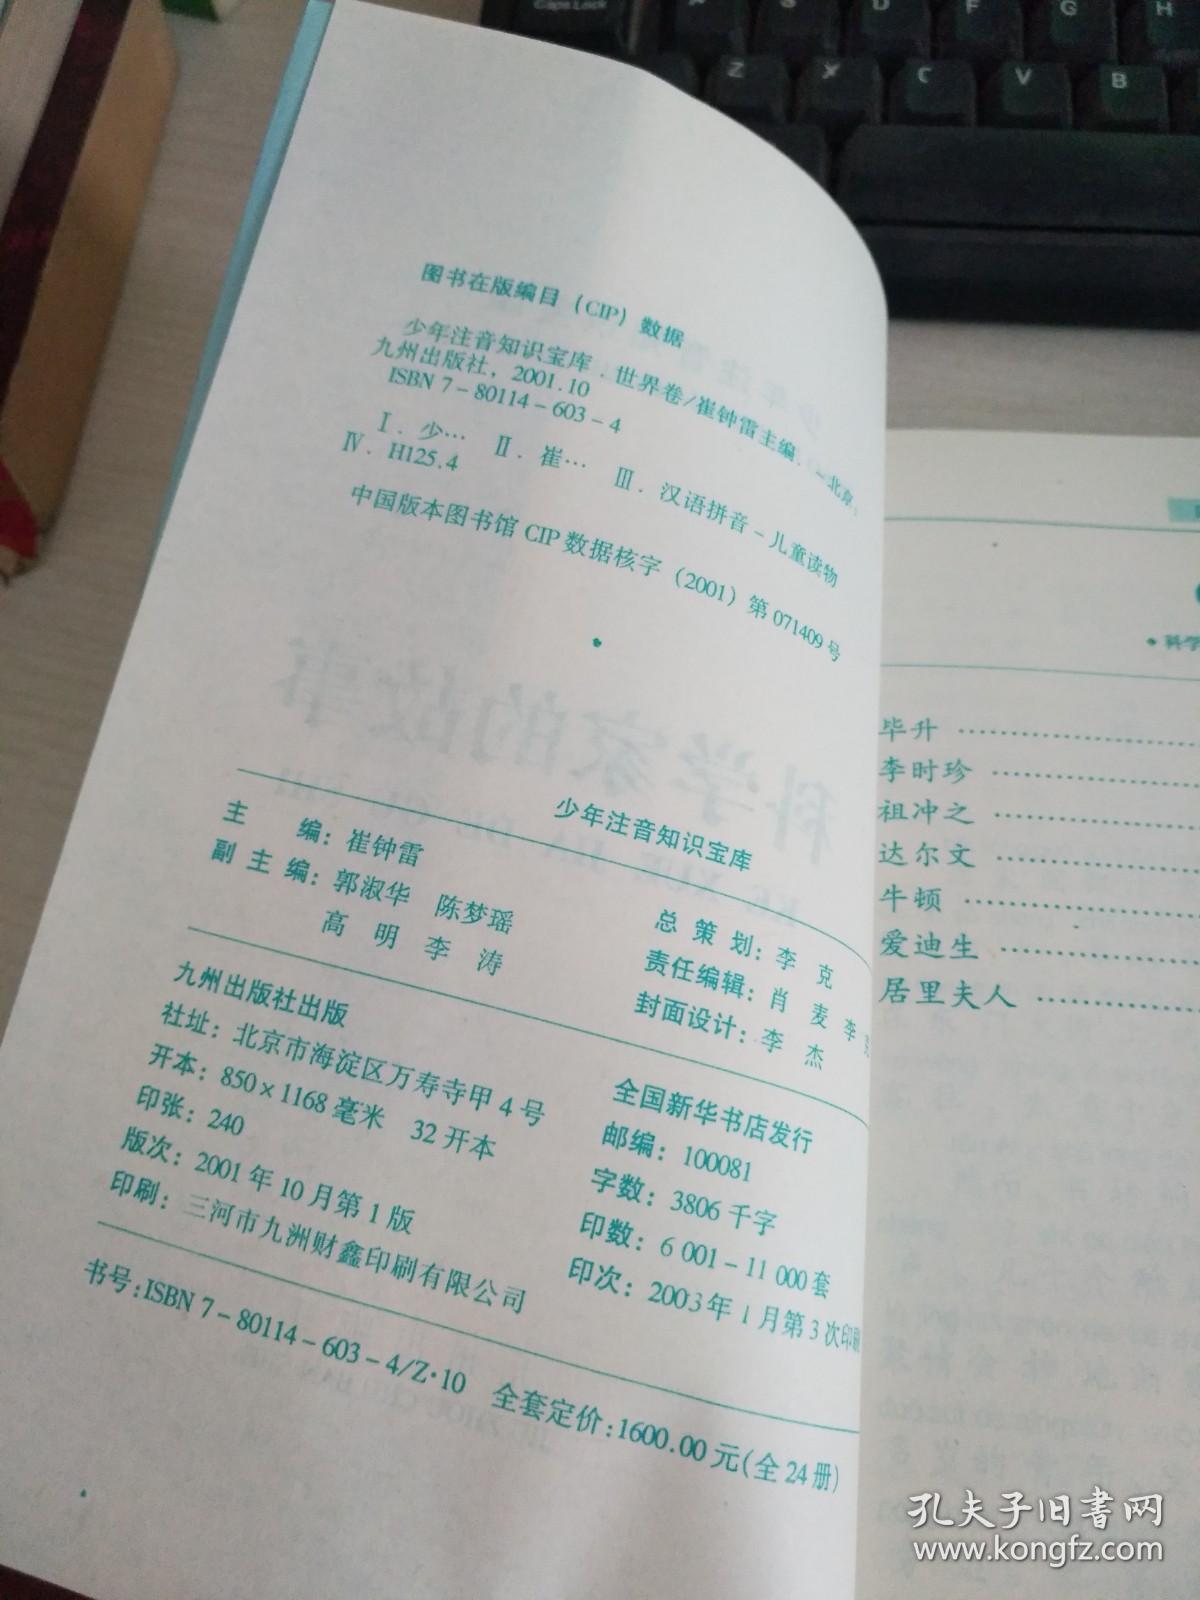 图书在版编目（CIP）数据
少年注音知识宝库．世界卷/崔钟雷主编．-北京：
九州出版社，2001.10
ISBN 7-80114-603-4
Ⅰ．少… Ⅱ．崔… Ⅲ．汉语拼音-儿童读物
Ⅳ．H125.4
中国版本图书馆 CIP 数据核字（2001）第 071409 号
少年注音知识宝库
主 编：崔钟雷
副 主 编：郭淑华 陈梦瑶
高 明 李 涛
总 策 划：李 克
责任编辑：肖 麦 李
封面设计：李 杰
九州出版社出版
社址：北京市海淀区万寿寺甲 4 号
开本：850×1168 毫米 32 开本
印张：240
版次：2001 年 10 月第 1 版
印刷：三河市九洲财鑫印刷有限公司
全国新华书店发行
邮编：100081
字数：3806 千字
印数：6 001-11 000 套
印次：2003 年 1 月第 3 次印刷
书号:ISBN 7-80114-603-4/Z·10 全套定价:1600.00 元(全 24 册)
科学家的故事
•科学
毕升
李时珍
祖冲之
达尔文
牛顿
爱迪生
居里夫人
Caps Lock A S D F G H
Z X C V B
孔夫子旧书网
www.kongfz.com